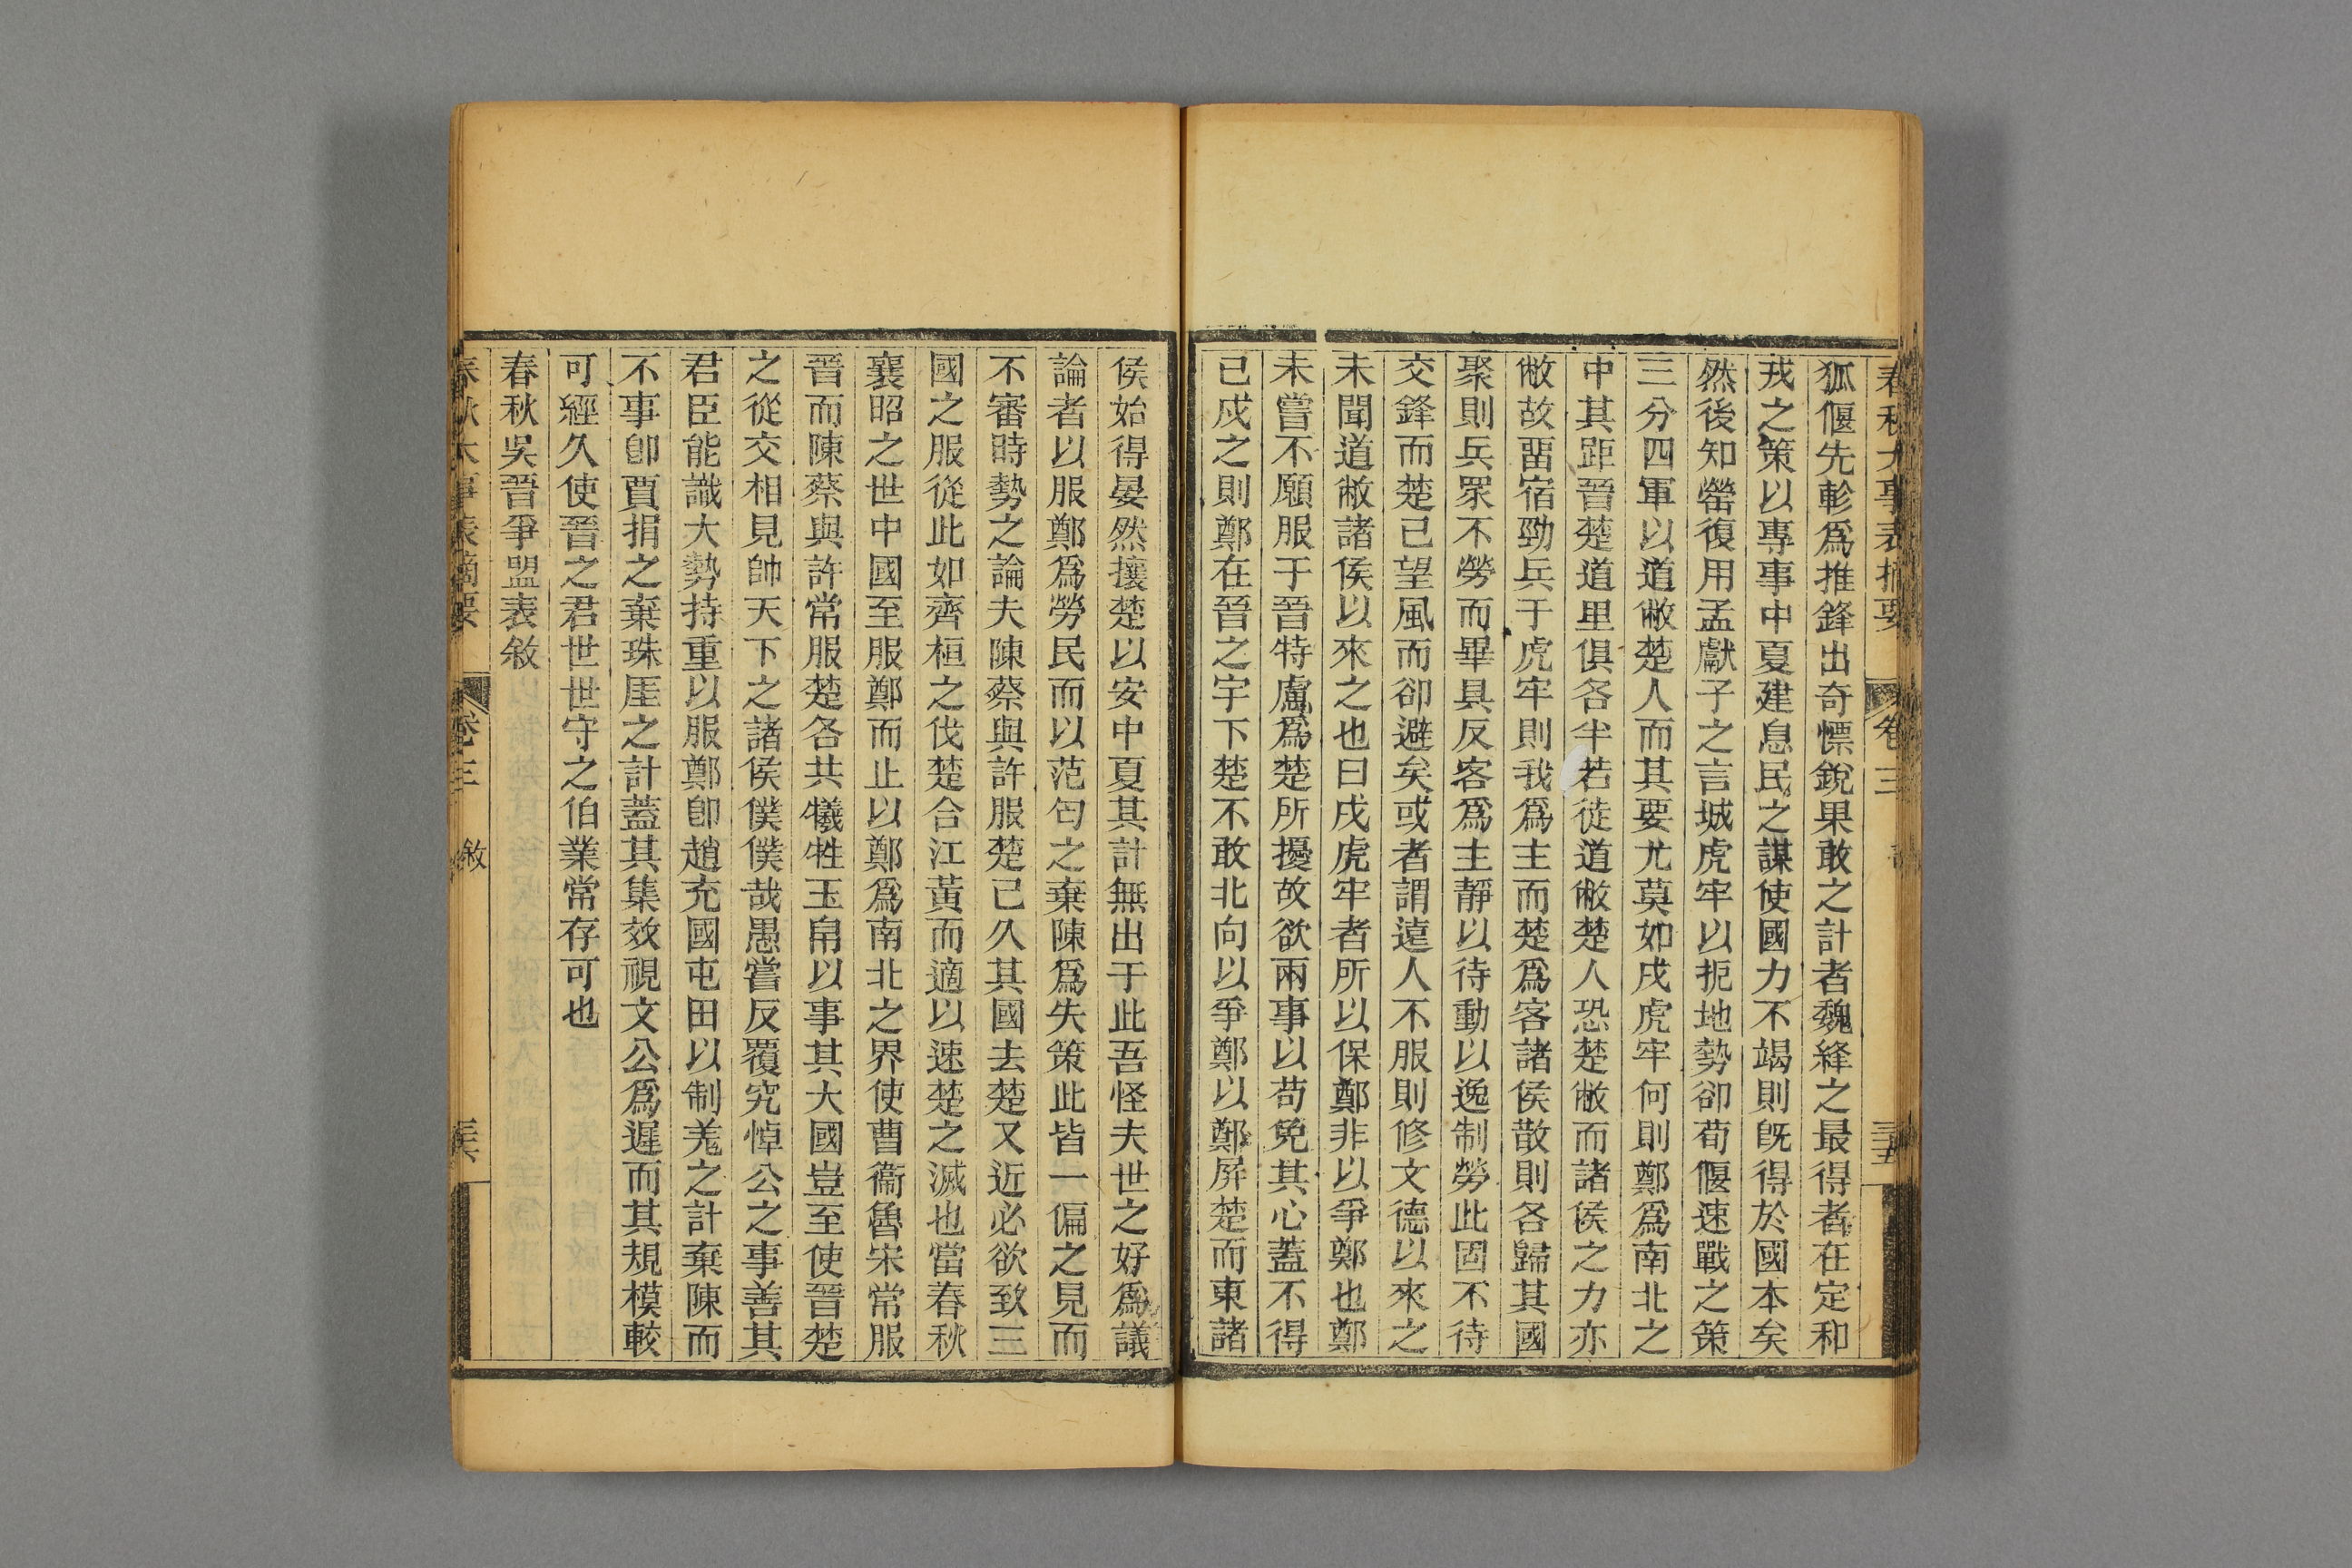 春秋大事表摘要 卷三 三五
狐偃先軫爲推鋒出奇慓銳果敢之計者魏絳之最得者在定和
戎之策以專事中夏建息民之謀使國力不竭則旣得於國本矣
然後知罃復用孟獻子之言城虎牢以扼地勢卻荀偃速戰之策
三分四軍以道敝楚人而其要尤莫如戍虎牢何則鄭爲南北之
中其距晉楚道里俱各半若徒道敝楚人恐楚敝而諸侯之力亦
敝故畱宿勁兵于虎牢則我爲主而楚爲客諸侯散則各歸其國
聚則兵眾不勞而畢具反客爲主靜以待動以逸制勞此固不待
交鋒而楚已望風而卻避矣或者謂遠人不服則修文德以來之
未聞道敝諸侯以來之也曰戍虎牢者所以保鄭非以爭鄭也鄭
未嘗不願服于晉特慮爲楚所擾故欲兩事以苟免其心蓋不得
已戍之則鄭在晉之宇下楚不敢北向以爭鄭以鄭屏楚而東諸
侯始得晏然攘楚以安中夏其計無出于此吾怪夫世之好爲議
論者以服鄭爲勞民而以范匄之棄陳爲失策此皆一偏之見而
不審時勢之論夫陳蔡與許服楚已久其國去楚又近必欲致三
國之服從此如齊桓之伐楚合江黃而適以速楚之滅也當春秋
襄昭之世中國至服鄭而止以鄭爲南北之界使曹衞魯宋常服
晉而陳蔡與許常服楚各共犧牲玉帛以事其大國豈至使晉楚
之從交相見帥天下之諸侯僕僕哉愚嘗反覆究悼公之事善其
君臣能識大勢持重以服鄭卽趙充國屯田以制羗之計棄陳而
不事卽賈捐之棄珠厓之計蓋其集效視文公爲遲而其規模較
可經久使晉之君世世守之伯業常存可也
春秋吳晉爭盟表敘
春秋大事表摘要 卷三 敘 三六